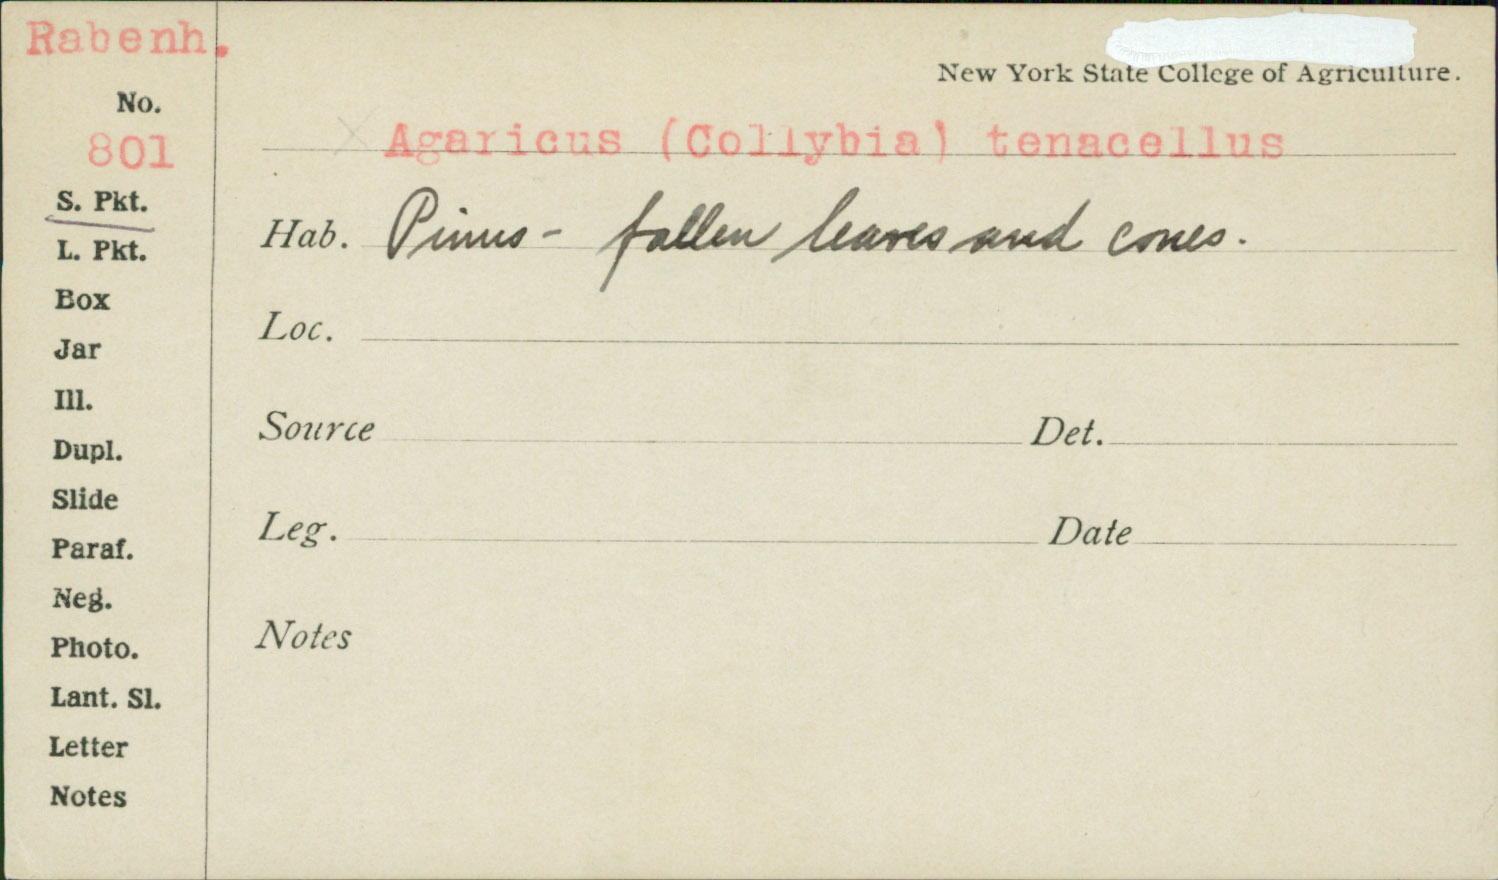 Rabenh.
No.
801
S. Pkt.
L. Pkt.
Box
Jar
Ill.
Dupl.
Slide
Paraf.
Neg.
Photo.
Lant. Sl.
Letter
Notes
New York State College of Agriculture.
× Agaricus (Collybia) tenacellus
Hab. Pinus - fallen leaves and cones.
Loc.
Source Det.
Leg. Date
Notes